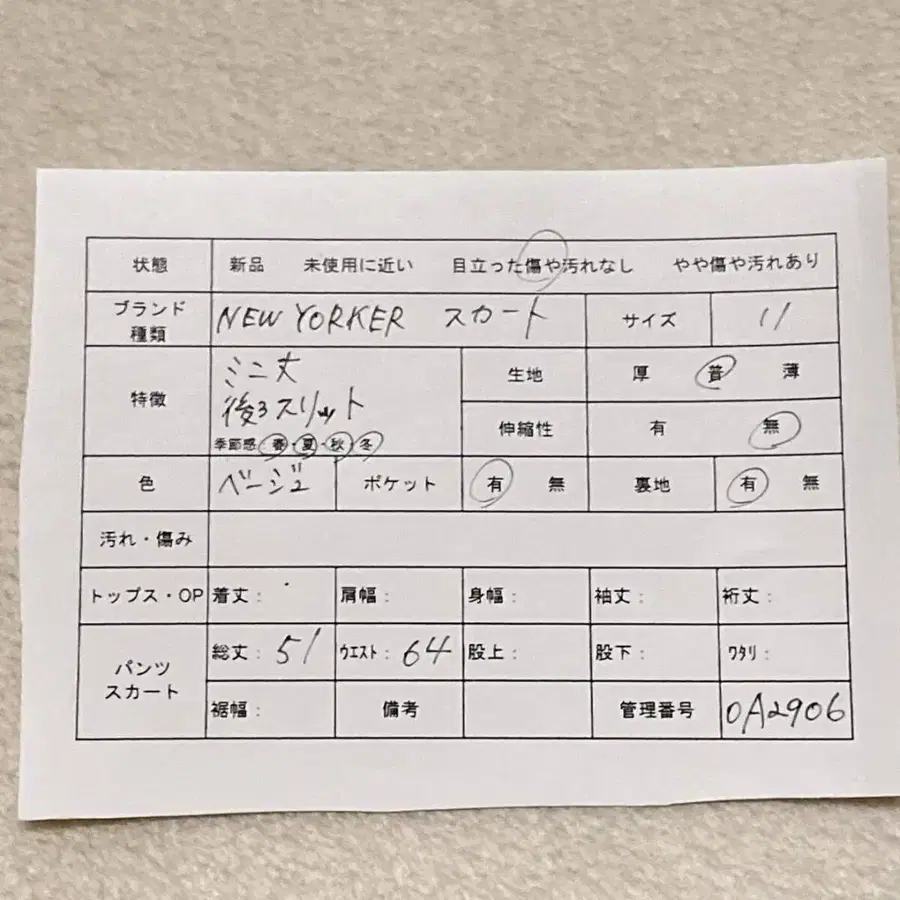 状態 新品 未使用に近い 目立った傷や汚れなし やや傷や汚れあり
ブランド種類 NEW YORKER スカート サイズ 11
特徴 ミニ丈
後ろスリット
季節感 春・夏・秋・冬
生地 厚 普 薄
伸縮性 有 無
色 ベージュ ポケット 有 無 裏地 有 無
汚れ・傷み
トップス・OP 着丈： 肩幅： 身幅： 袖丈： 裄丈：
パンツ
スカート
総丈：51 ウエスト：64 股上： 股下： ワタリ：
裾幅： 備考 管理番号 0A2906